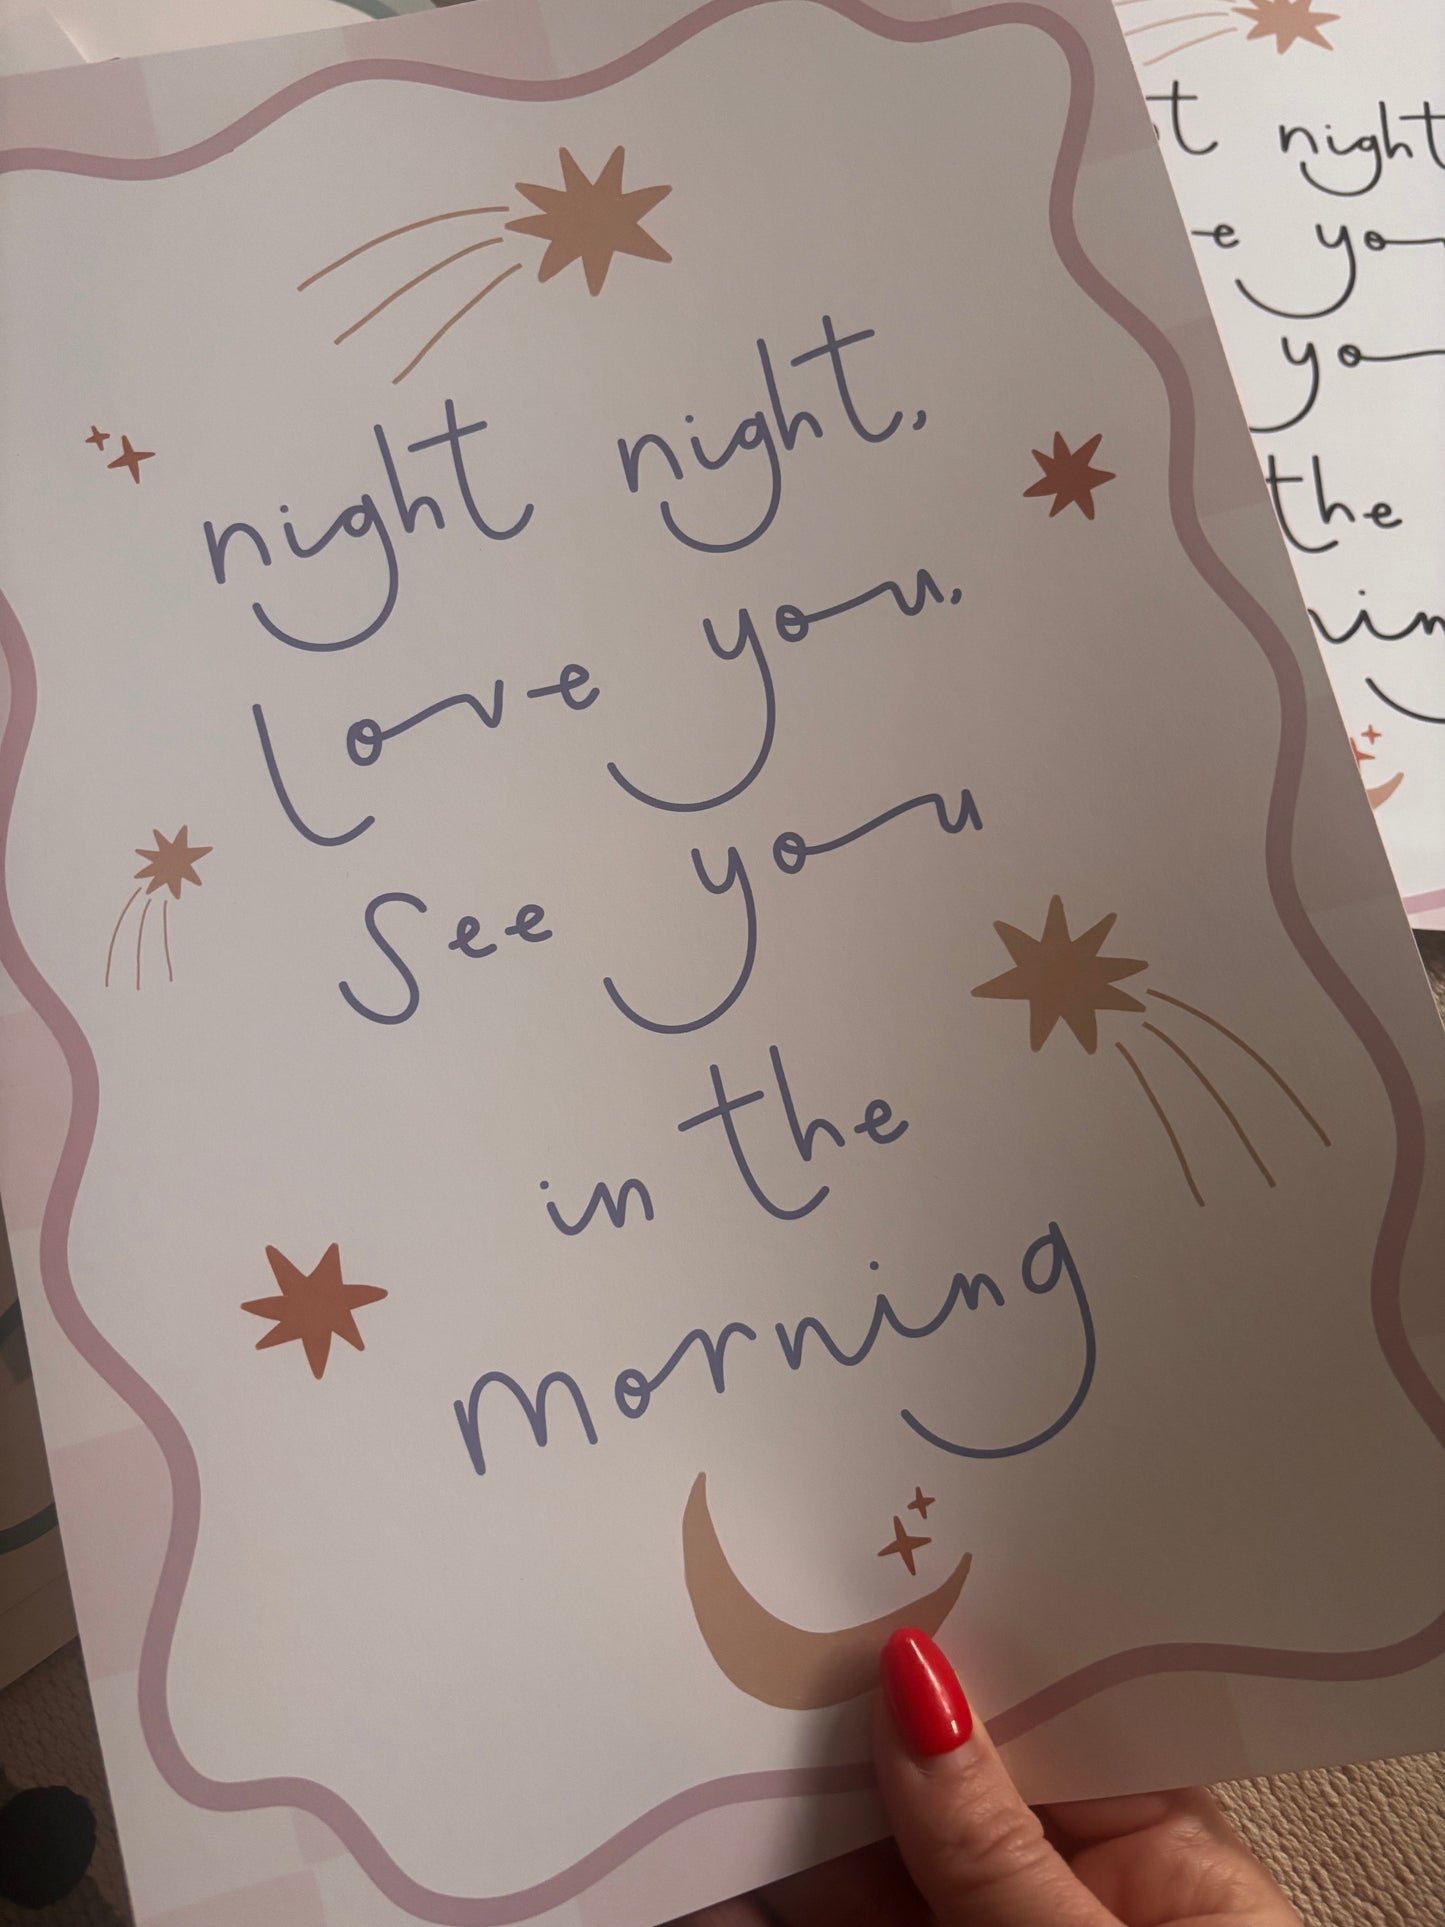 night night,
Love you,
See you
in the
morning
night
e yo
yo
the